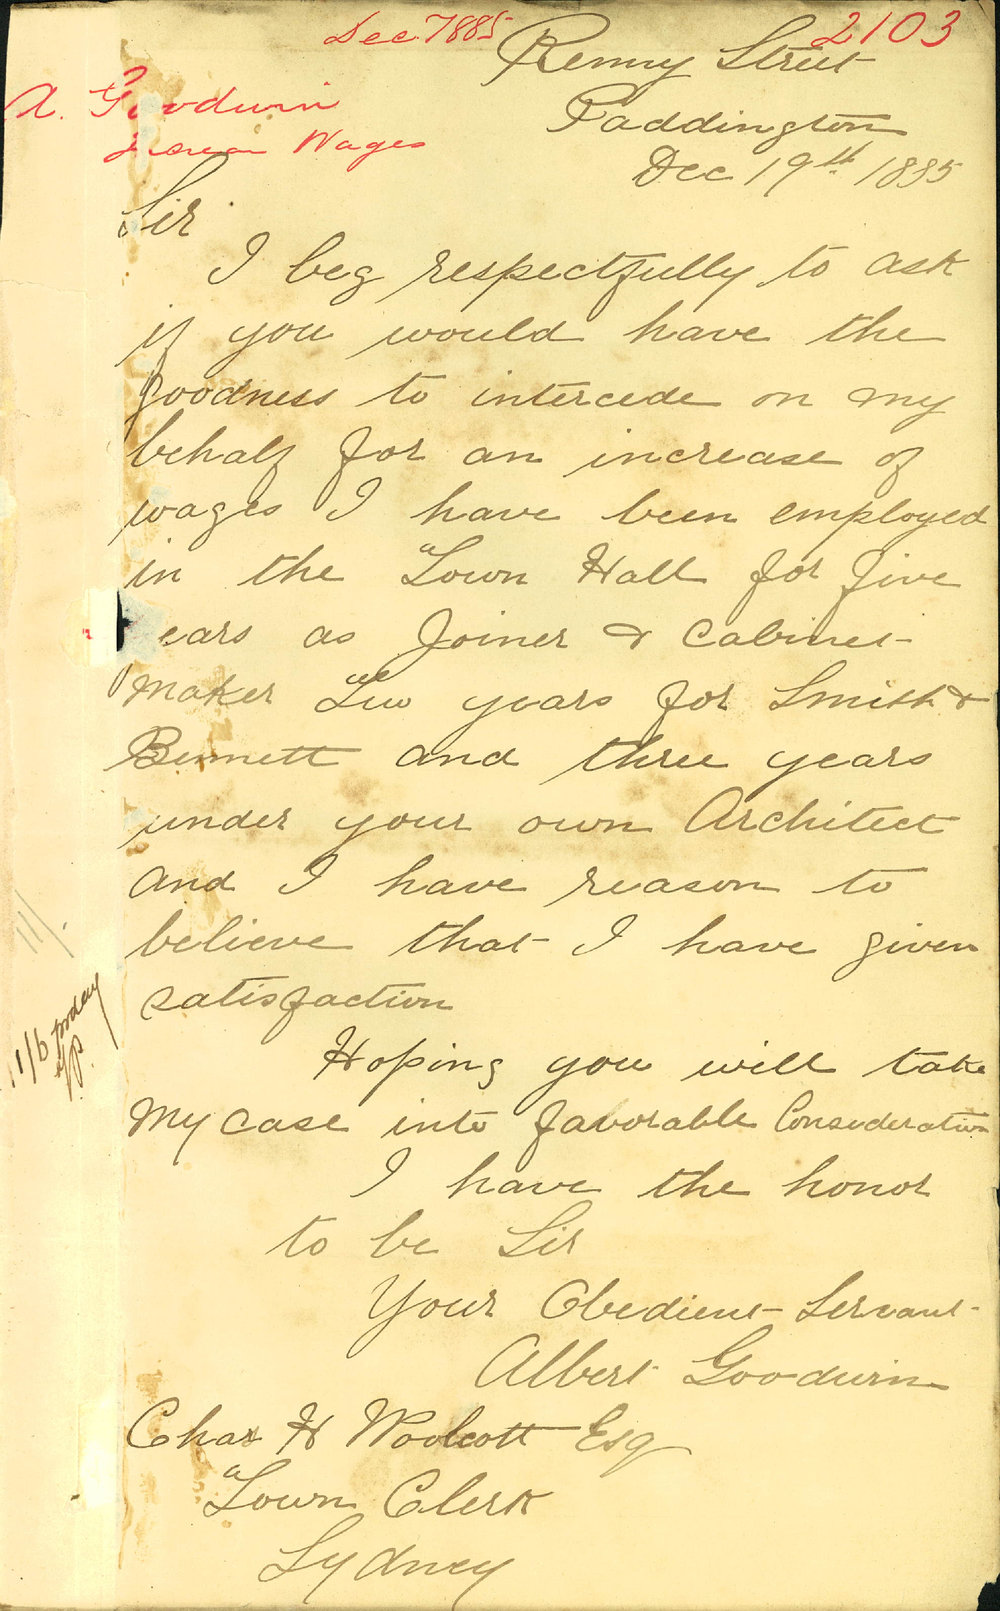 Dec 7885 2103
Renny Street
A. Goodwin
Paddington
Wages
Dec 19th 1885
Sir
I beg respectfully to ask
if you would have the
goodness to intercede on my
behalf for an increase of
wages I have been employed
in the Town Hall for five
ears as Joiner & Cabinet
Maker Two years for Smith &
Bennett and three years
under your own Architect
and I have reason to
believe that I have given
satisfaction
Hoping you will take
My case into favorable Consideration
I have the honor
to be Sir
Your Obedient Servant
Albert Goodwin
Chas H Woolcott Esq
Town Clerk
Sydney
11/6 per day